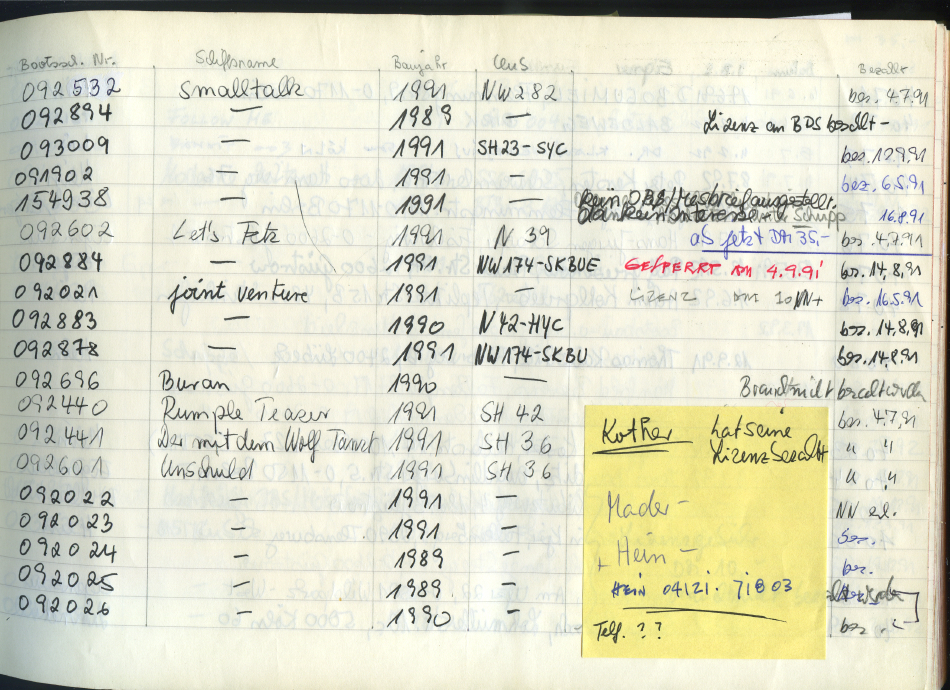 Bootssch. Nr. Schiffsname Baujahr Bezahlt
092532 Smalltalk 1991 NW282 bez. 4.7.91
092894 — 1989 — Lizenz an BDS bezahlt -
093009 — 1991 SH23-SYC bez. 10.9.91
091902 — 1991 — bez. 6.5.91
154938 — 1991 — Schupp 16.8.91
092602 Let's Fetz 1991 N 39 ab jetzt DM 35,- bez. 4.7.91
092884 — 1991 NW174-SKBUE GESPERRT AM 4.9.91 bez. 14.8.91
092021 joint venture 1991 — LIZENZ bez. 16.5.91
092883 — 1990 N42-HYC bez. 14.8.91
092878 — 1991 NW174-SKBU bez. 14.8.91
092696 Buran 1990 —
092440 Rumple Teazer 1991 SH 42 bez. 4.7.91
092441 Der mit dem Wolf Tanzt 1991 SH 36 " "
092601 Unschuld 1991 SH 36 " "
092022 — 1991 —
092023 — 1991 — bez.
092024 — 1989 — bez.
092025 — 1989 —
092026 — 1990 — bez.
Kother hat seine
Lizenz bezahlt
Mader -
+ Hein -
HEIN 04121. 71803
Telf. ??